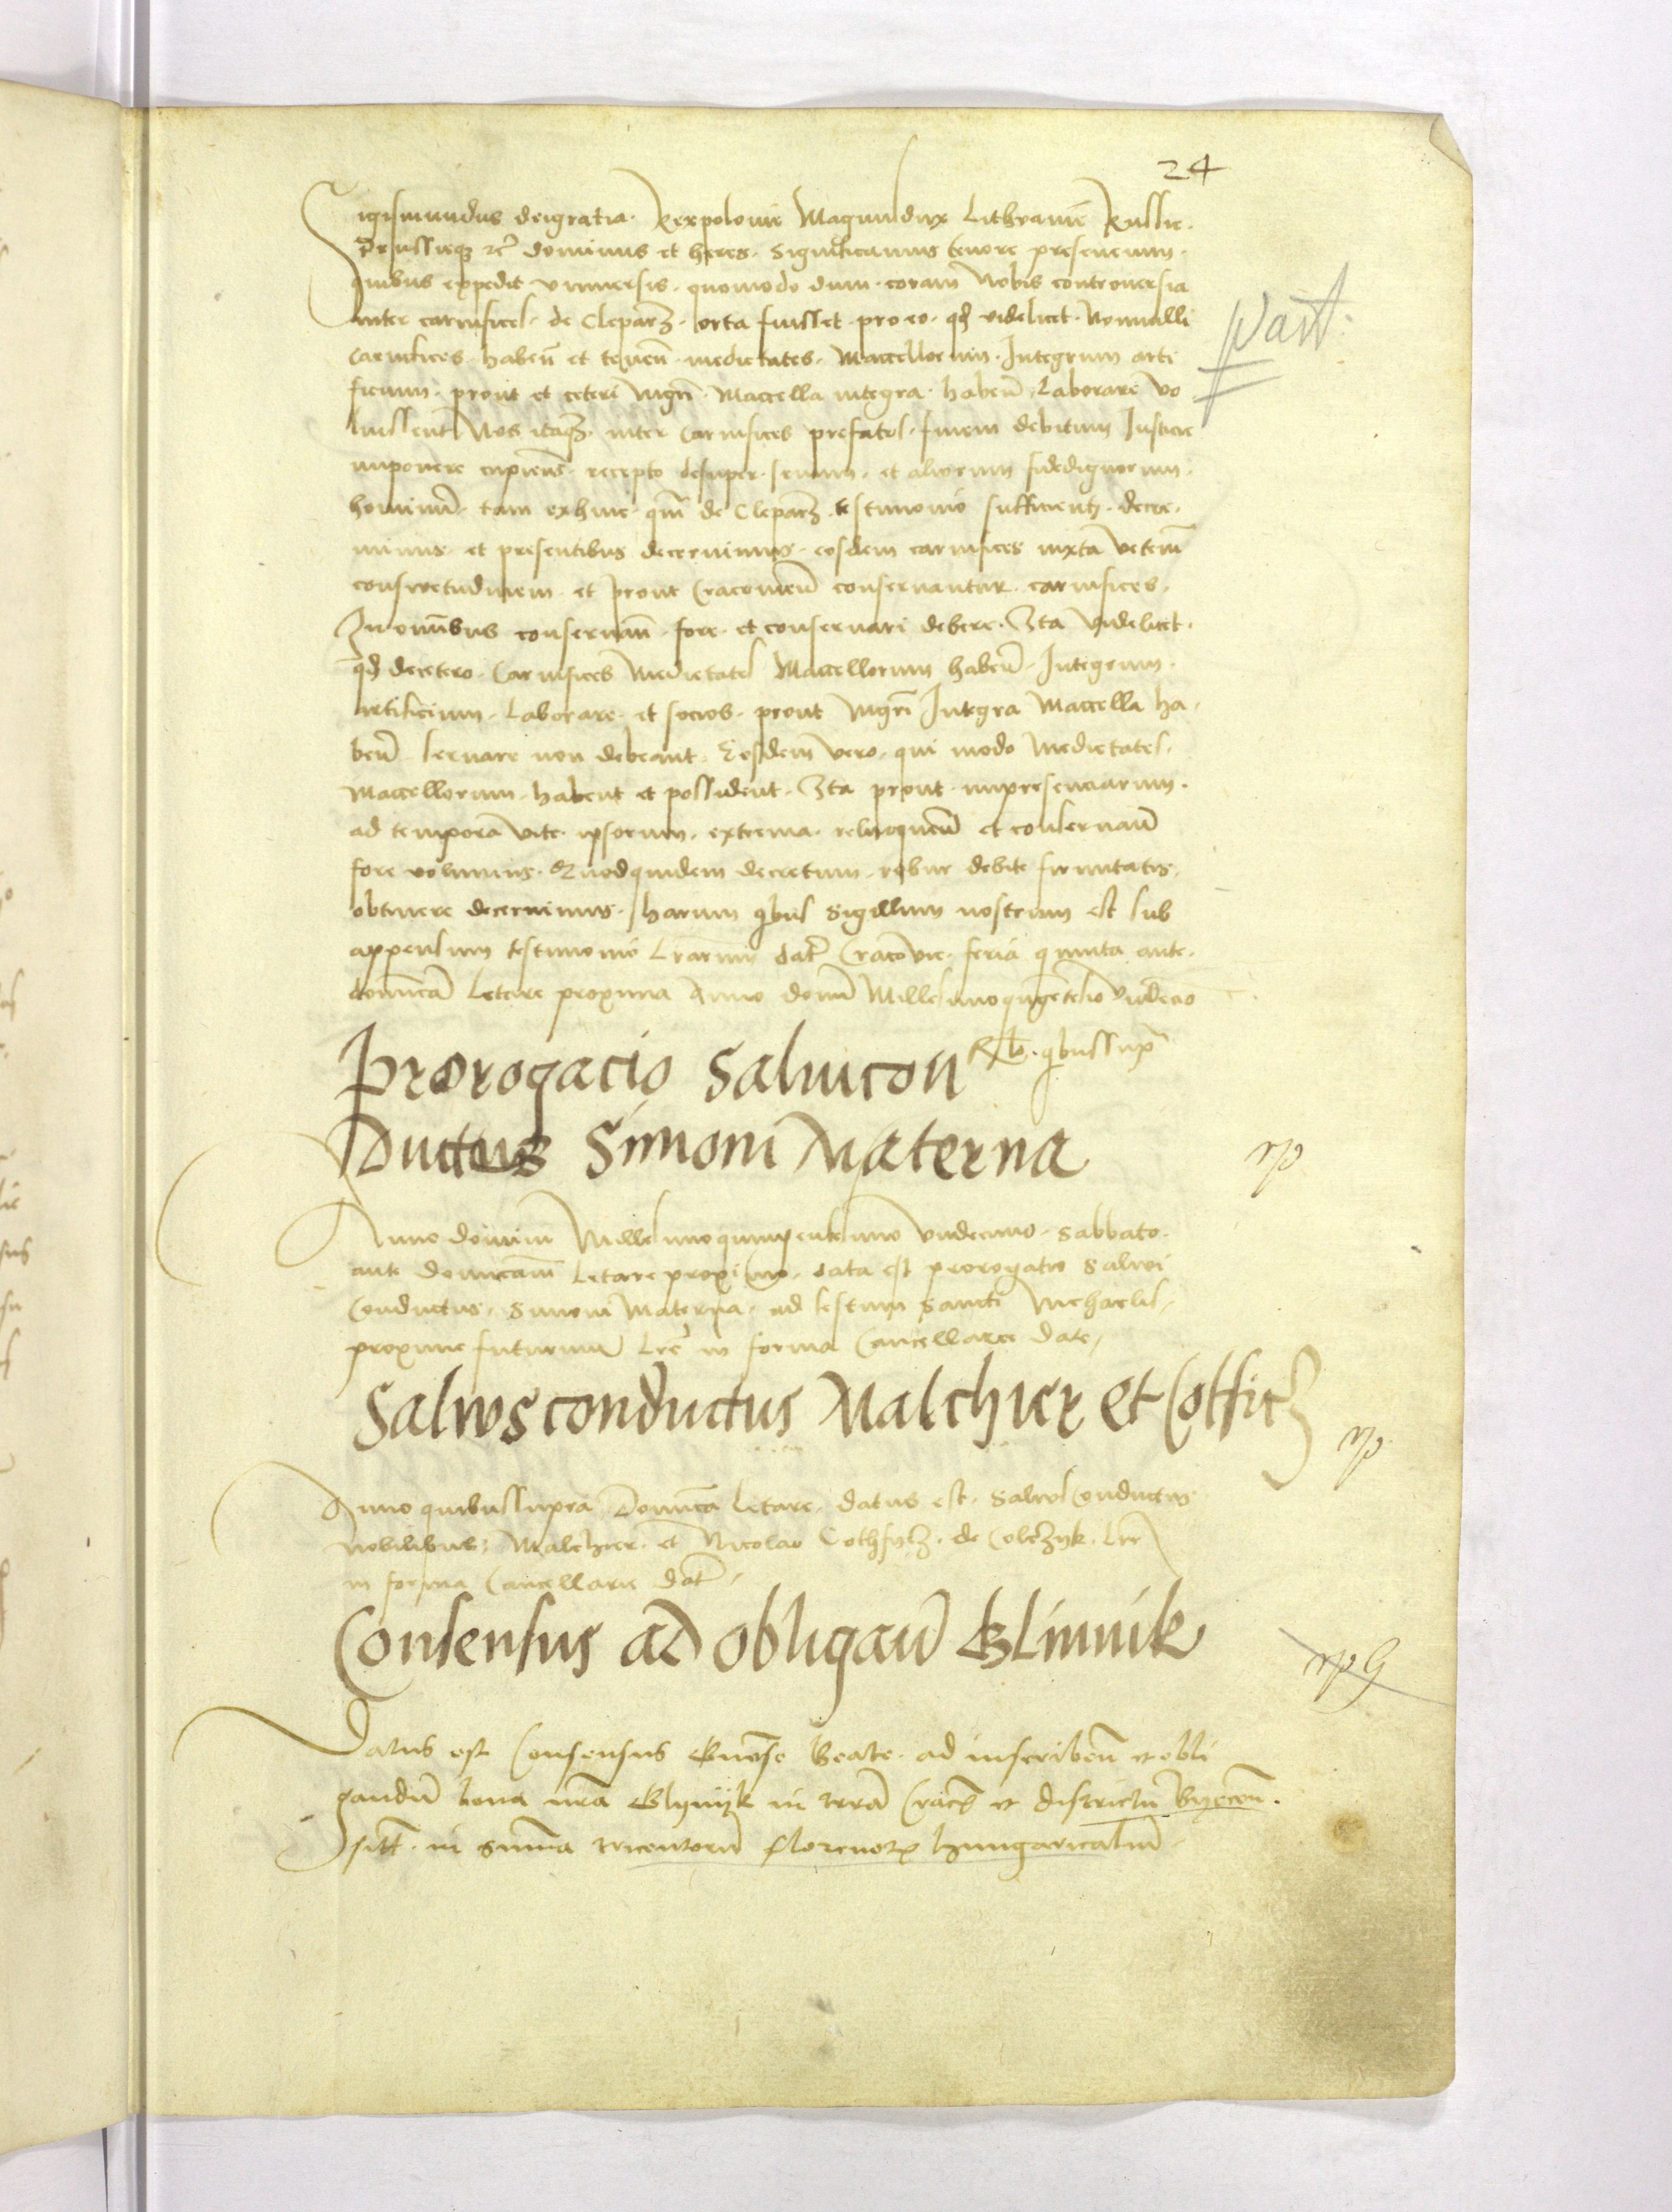 24
Sigismundus deigratia. Rexpolonie Magnusdux Lithvanie Russie.
Prussieq3 etc̃ dominus et heres. Significamus tenore presencium.
quibus expedit vniuersis. quomodo dum. coram Nobis controuersia
inter carnifices. de Cleparz. orta fuisset. pro eo. qd videlicet. Nonnulli
Carnifices. habeñ et teneñ medietates. Maccellorum. Integrum arti
ficium. prout et ceteri mgrĩ. Maccella integra. habeñ Laborare vo
luissent Nos itaq3. inter Carnifices prefatos. finem debitum Justicie
imponere cupieñs. recepto desuper. senum. et aliorum fidedignorum.
hominũ. tam exhinc. qm̃ de Cleparz. testimonio sufficienti. decre.
uimus. et presentibus decernimus. eosdem carnifices iuxta veterem̃
conswetudinem. et prout Cracouieñ conseruantur. carnifices.
In om̃ibus conseruañ. fore. et conseruari debere. Ita videlicet.
qd decetero. Carnifices Medietates Maccellorum habeñ. Integrum.
artificium. Laborare. et socios. prout mgrĩ Integra Maccella ha.
beñ seruare non debeant. Eosdem vero. qui modo Medietates.
Maccellorum. habent et possident. Ita prout. inpresenciarum.
ad tempora vite. ipsorum. extrema. relinqueñ et conseruañ
fore volumus. Quodquidem decretum. robur debite firmitatis.
obtinere decernimus. harum qbus Sigillum nostrum est sub
appensum testimonio Lrarum dat̃ Cracovie. feria quinta ante.
dom̃icã Letare proxima Anno domĩ Millesimoqngētesiō vndecīo
R̃b. qbussup̃
Prorogacio Saluicon
Ductus Simoni Materna
Anno domini Millesimoquingentesimo vndecimo. Sabbato.
ante Dominicam Letare proximo. data est prorogatio Salui
Conductus. Simoni Materna. ad festum Sancti Michaelis.
proxime futurum Lrẽ in forma Cancellarie date,
Saluusconductus Malchier et Coffic3
Anno quibussupra Dom̃ica Letare. datus est. saluus Conductus
Nobilibus. Malchier. et Nicolao Cothfycz. de Colczyk. Lrẽ
in forma Cancellarie Dat̃.
Consensus ad obligañ Glinnik
Datus est Consensus Beate. ad inscribeñ et obli
gandũ bona nr̃a Glynnyk in terra Crac̃ et districtu Byeceñ.
sitt̃. in summa tricentorũ florenorũ hungaricaliũ.